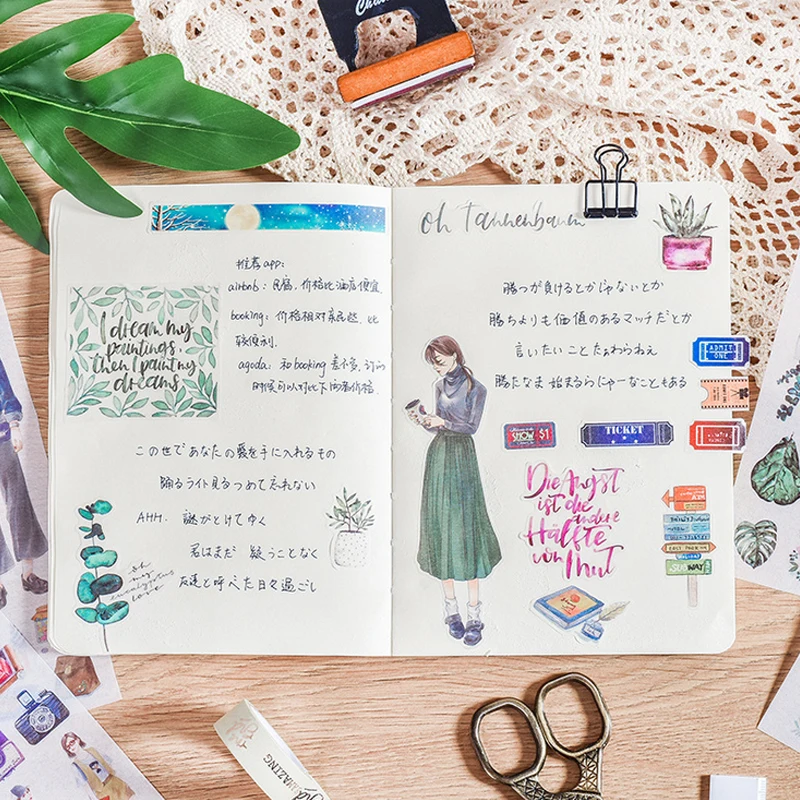 推荐 app:
airbnb: 民宿, 价格比酒店便宜
booking: 价格相对亲民些, 比
较便利.
agoda: 和 booking 差不多, 订的
时候可以对比下两者价格.
I dream my
paintings,
then I paint my
dreams
この世であなたの愛を手に入れるもの
踊るライト見つめて忘れない
AHH. 謎がとけてゆく
君はまだ 疑うことなく
友達と呼べた日々過ごし
oh
my
eucalyptus
love
oh Tannenbaum
勝つが負けるとかじゃないとか
勝ちよりも価値のあるマッチだとか
言いたいことたぁわらわねぇ
勝たなま始まるらにゃーなこともある
ADMIT
ONE
SHOW $1
TICKET
Die Angst
ist die
andere
Hälfte
von Mut
SUBWAY
AMAZING